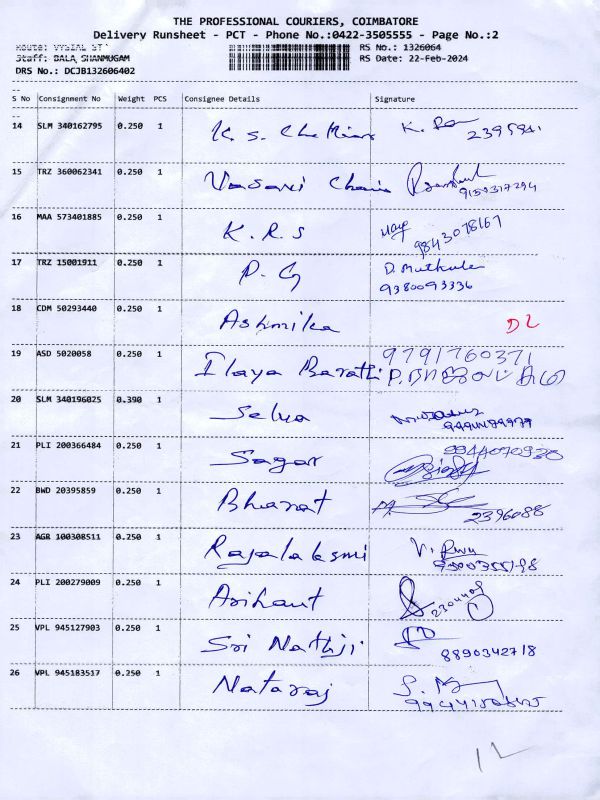 THE PROFESSIONAL COURIERS, COIMBATORE
Delivery Runsheet - PCT - Phone No.:0422-3505555 - Page No.:2
Route: VYSIAL ST RS No.: 1326064
Staff: BALA, SHANMUGAM RS Date: 22-Feb-2024
DRS No.: DCJB132606402
S No Consignment No Weight PCS Consignee Details Signature
14 SLM 340162795 0.250 1 K. S. Chettiar
15 TRZ 360062341 0.250 1 Vasavi Chain 9159317294
16 MAA 573401885 0.250 1 K. R. S 9843078167
17 TRZ 15001911 0.250 1 P. G D. Muthule
9380093336
18 CDM 50293440 0.250 1 Ashmika DL
19 ASD 5020058 0.250 1 Ilaya Barathi 9791760371
20 SLM 340196025 0.390 1 Selva
21 PLI 200366484 0.250 1 Sagar 9944070930
22 BWD 20395859 0.250 1 Bharat 2396088
23 AGR 100308511 0.250 1 Rajalaksmi
24 PLI 200279009 0.250 1 Arihant
25 VPL 945127903 0.250 1 Sri Nathji 8890342718
26 VPL 945183517 0.250 1 Nataraj